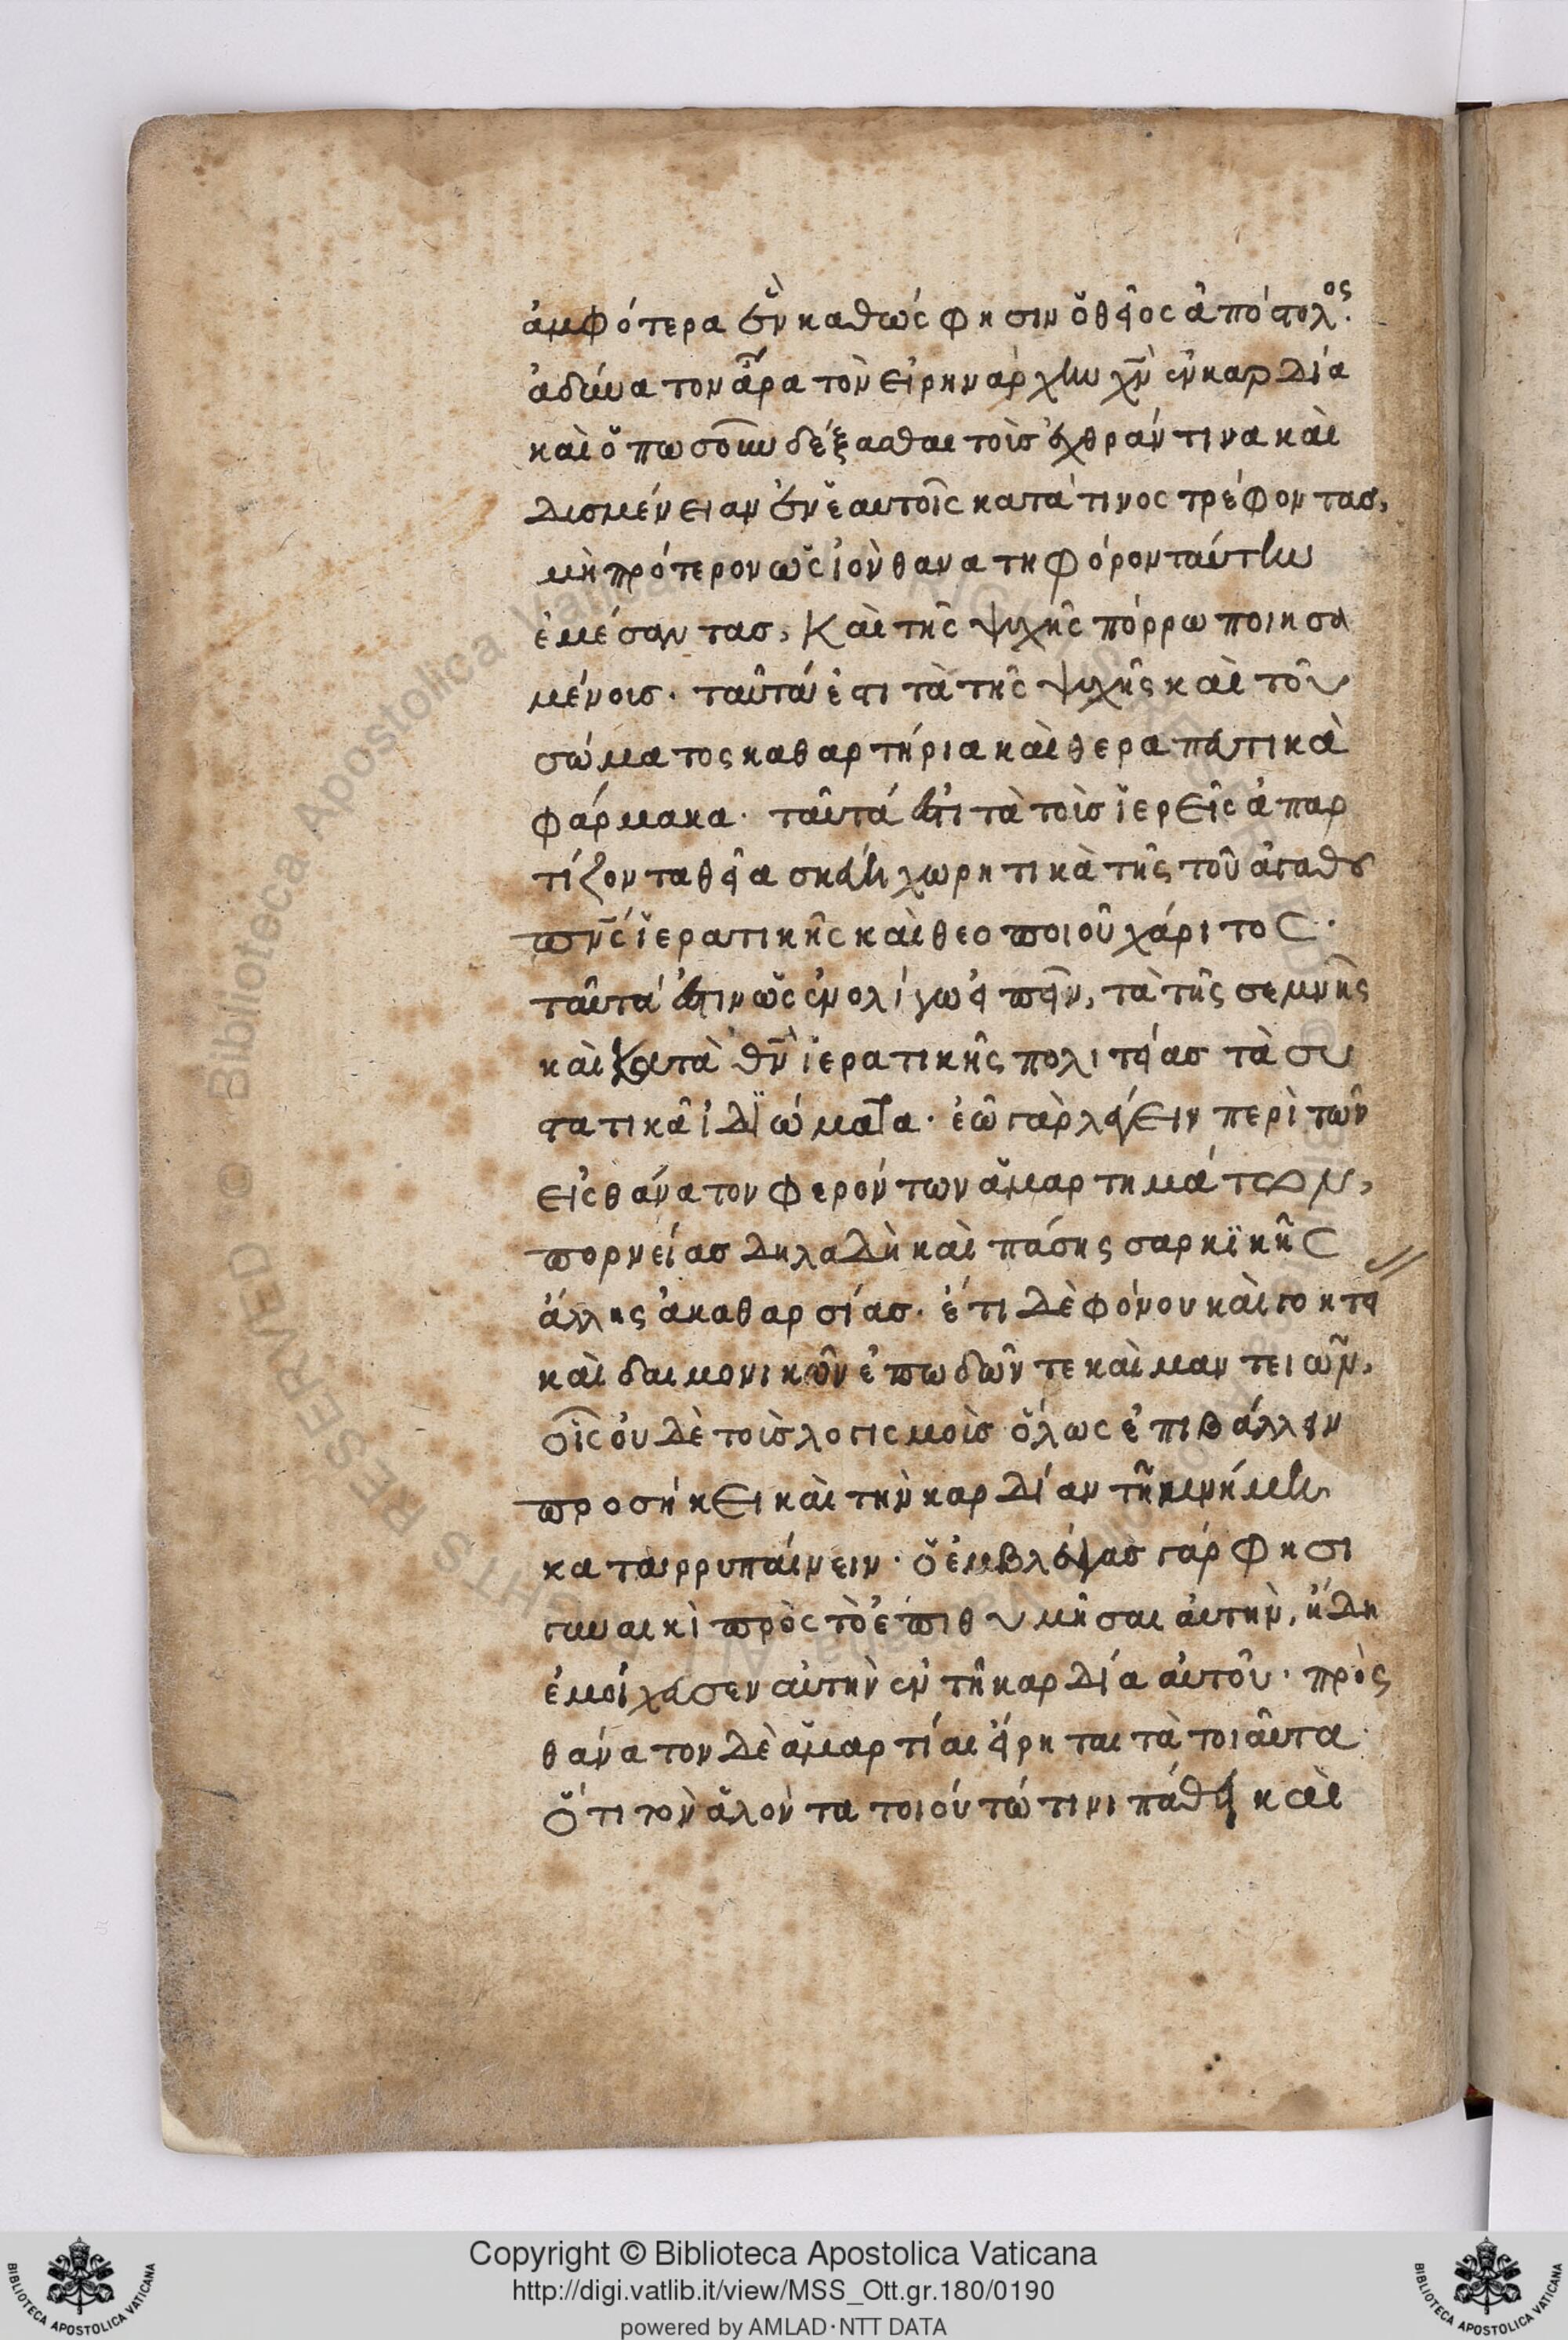 ἀμφότερα ἓν καθὼς φησιν ὁ θεῖος ἀπόστολος.
ἀδύνατον ἄρα τὸν εἰρηνάρχην χν ἐν καρδία
καὶ ὁπωσοῦν δέξασθαι τοῖς ἔχθραν τινα καὶ
δυσμένειαν ἐν ἑαυτοῖς κατά τινος τρέφοντας,
μὴ πρότερον ὡς ἰὸν θανατηφόρον ταύτην
ἐμέσαντας, καὶ τῆς ψυχῆς πόρρω ποιησα
μένοις. ταῦτά ἐστι τὰ τῆς ψυχῆς καὶ τοῦ
σώματος καθαρτήρια καὶ θεραπευτικὰ
φάρμακα. ταῦτά ἐστι τὰ τοῖς ἱερεῖς ἀπαρ
τίζοντα θεῖα σκεύη χωρητικὰ τῆς τοῦ ἀγαθοῦ
πνς ἱερατικῆς καὶ θεοποιοῦ χάριτος.
ταῦτά ἐστιν ὡς ἐν ολίγω εἰπεῖν, τὰ τῆς σεμνῆς
καὶ κατὰ θν ἱερατικῆς πολιτείας τὰ συ
στατικὰ ἰδιώματα. ἐῶ γὰρ λέγειν περὶ τῶν
εἰς θάνατον φερόντων ἁμαρτημάτων,
πορνείας δηλαδὴ καὶ πάσης σαρκικῆς
ἄλλης ἀκαθαρσίας. ἔτι δὲ φόνου καὶ γοητει
καὶ δαιμονικῶν ἐπωδῶν τε καὶ μαντειῶν,
οἷς οὐδὲ τοῖς λογισμοῖς ὅλως ἐπιβάλλειν
προσήκει καὶ τὴν καρδίαν τῆ μνήμη
καταρρυπαίνειν. ὁ ἐμβλέψας γάρ φησι
γυναικὶ πρὸς τὸ ἐπιθυμῆσαι ἀυτὴν, ἤδη
ἐμοίχευσεν αὐτὴν ἐν τῆ καρδία αὐτοῦ. πρὸς
θάνατον δὲ ἁμαρτίαι εἴρηται τὰ τοιαῦτα.
ὅτι τὸν ἁλόντα τοιούτώ τινι πάθει καὶ
Copyright © Biblioteca Apostolica Vaticana
http://digi.vatlib.it/view/MSS_Ott.gr.180/0190
powered by AMLAD·NTT DATA